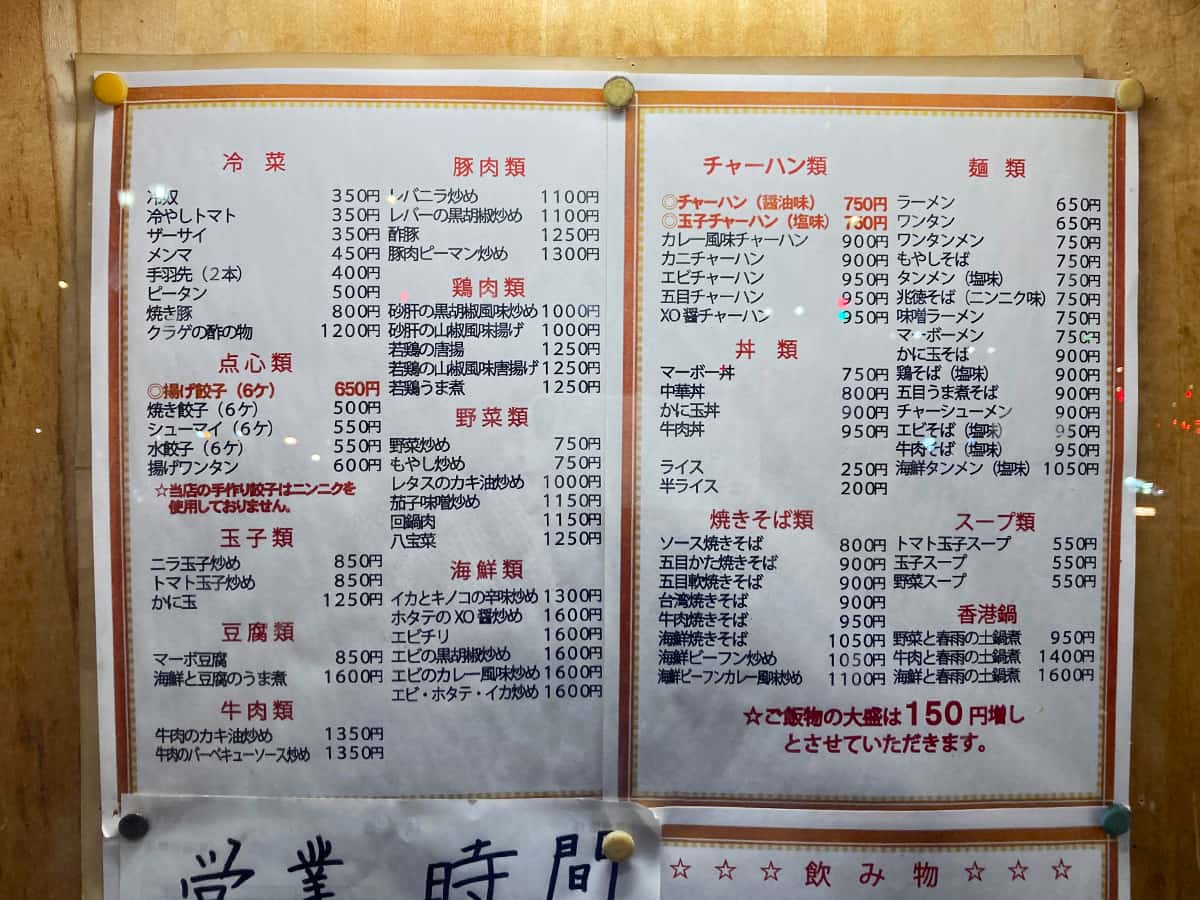 冷菜
冷奴 350円
冷やしトマト 350円
ザーサイ 350円
メンマ 450円
手羽先（2本） 400円
ピータン 500円
焼き豚 800円
クラゲの酢の物 1200円
点心類
◎揚げ餃子（6ケ） 650円
焼き餃子（6ケ） 500円
シューマイ（6ケ） 550円
水餃子（6ケ） 550円
揚げワンタン 600円
☆当店の手作り餃子はニンニクを
使用しておりません。
玉子類
ニラ玉子炒め 850円
トマト玉子炒め 850円
かに玉 1250円
豆腐類
マーボ豆腐 850円
海鮮と豆腐のうま煮 1600円
牛肉類
牛肉のカキ油炒め 1350円
牛肉のバーベキューソース炒め 1350円
豚肉類
レバニラ炒め 1100円
レバーの黒胡椒炒め 1100円
酢豚 1250円
豚肉ピーマン炒め 1300円
鶏肉類
砂肝の黒胡椒風味炒め 1000円
砂肝の山椒風味揚げ 1000円
若鶏の唐揚 1250円
若鶏の山椒風味唐揚げ 1250円
若鶏うま煮 1250円
野菜類
野菜炒め 750円
もやし炒め 750円
レタスのカキ油炒め 1000円
茄子味噌炒め 1150円
回鍋肉 1150円
八宝菜 1250円
海鮮類
イカとキノコの辛味炒め 1300円
ホタテのXO醤炒め 1600円
エビチリ 1600円
エビの黒胡椒炒め 1600円
エビのカレー風味炒め 1600円
エビ・ホタテ・イカ炒め 1600円
チャーハン類
◎チャーハン（醤油味） 750円
◎玉子チャーハン（塩味） 750円
カレー風味チャーハン 900円
カニチャーハン 900円
エビチャーハン 950円
五目チャーハン 950円
XO醤チャーハン 950円
丼類
マーボー丼 750円
中華丼 800円
かに玉丼 900円
牛肉丼 950円
ライス 250円
半ライス 200円
焼きそば類
ソース焼きそば 800円
五目かた焼きそば 900円
五目軟焼きそば 900円
台湾焼きそば 900円
牛肉焼きそば 950円
海鮮焼きそば 1050円
海鮮ビーフン炒め 1050円
海鮮ビーフンカレー風味炒め 1100円
麺類
ラーメン 650円
ワンタン 650円
ワンタンメン 750円
もやしそば 750円
タンメン（塩味） 750円
兆徳そば（ニンニク味） 750円
味噌ラーメン 750円
マーボーメン 750円
かに玉そば 900円
鶏そば（塩味） 900円
五目うま煮そば 900円
チャーシューメン 900円
エビそば（塩味） 950円
牛肉そば（塩味） 950円
海鮮タンメン（塩味） 1050円
スープ類
トマト玉子スープ 550円
玉子スープ 550円
野菜スープ 550円
香港鍋
野菜と春雨の土鍋煮 950円
牛肉と春雨の土鍋煮 1400円
海鮮と春雨の土鍋煮 1600円
☆ご飯物の大盛は150円増し
とさせていただきます。
営業時間
☆☆☆飲み物☆☆☆